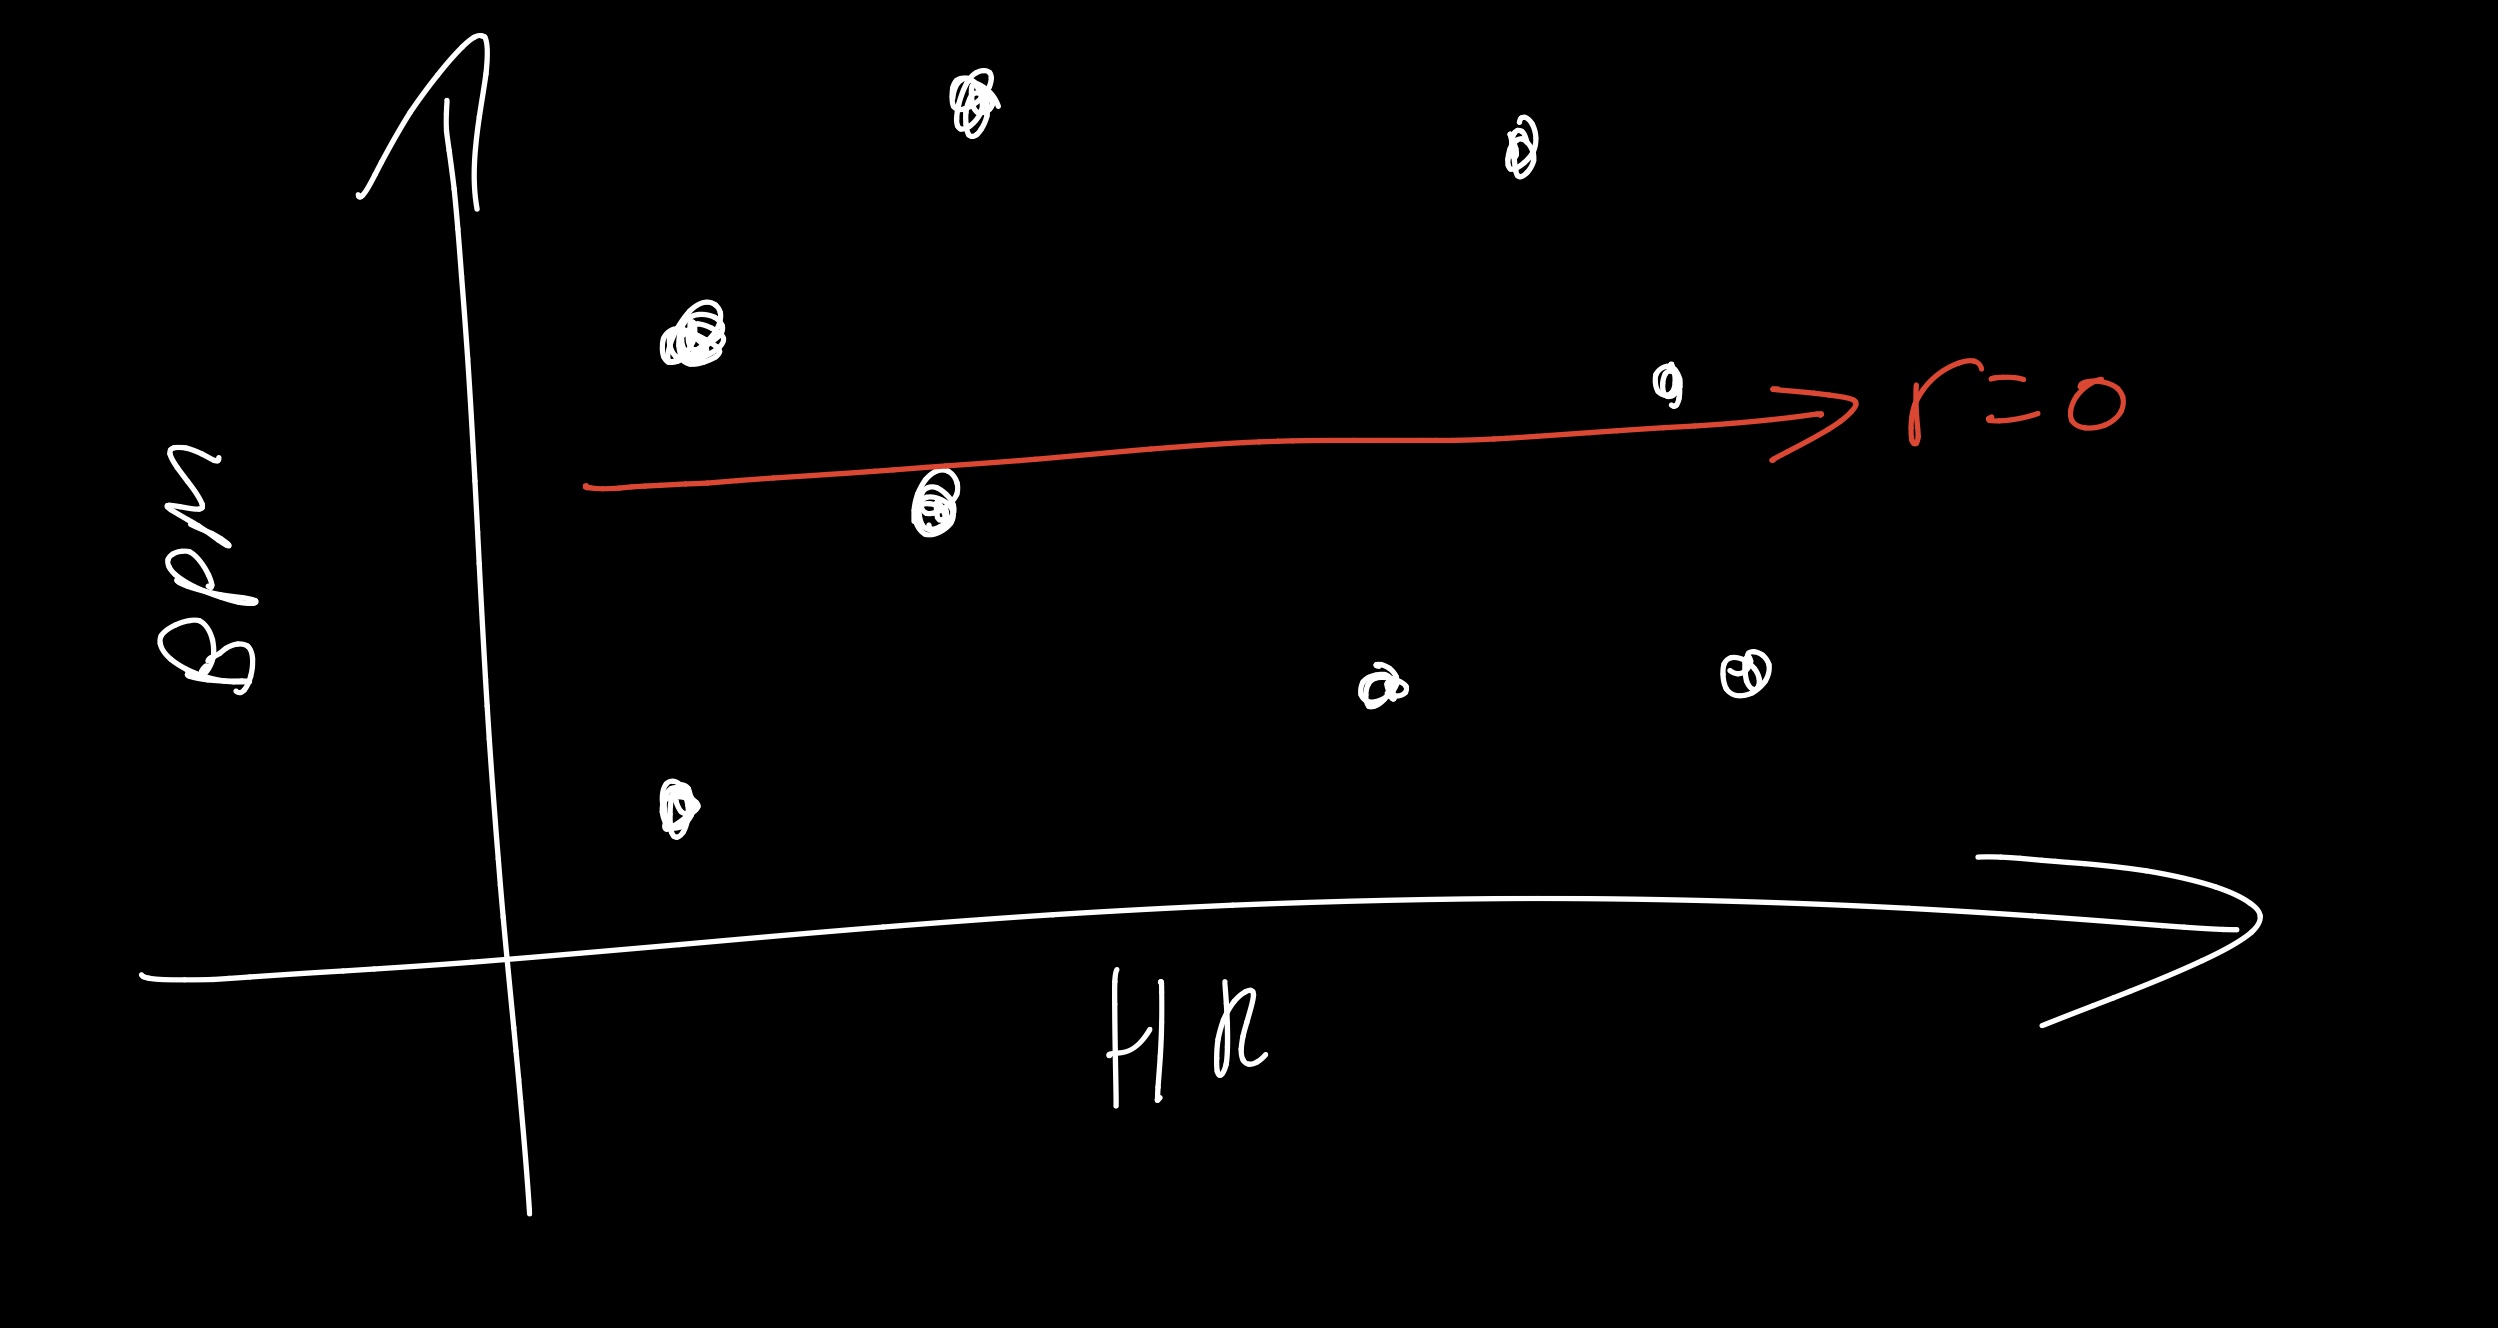 BPM
r=0
HR